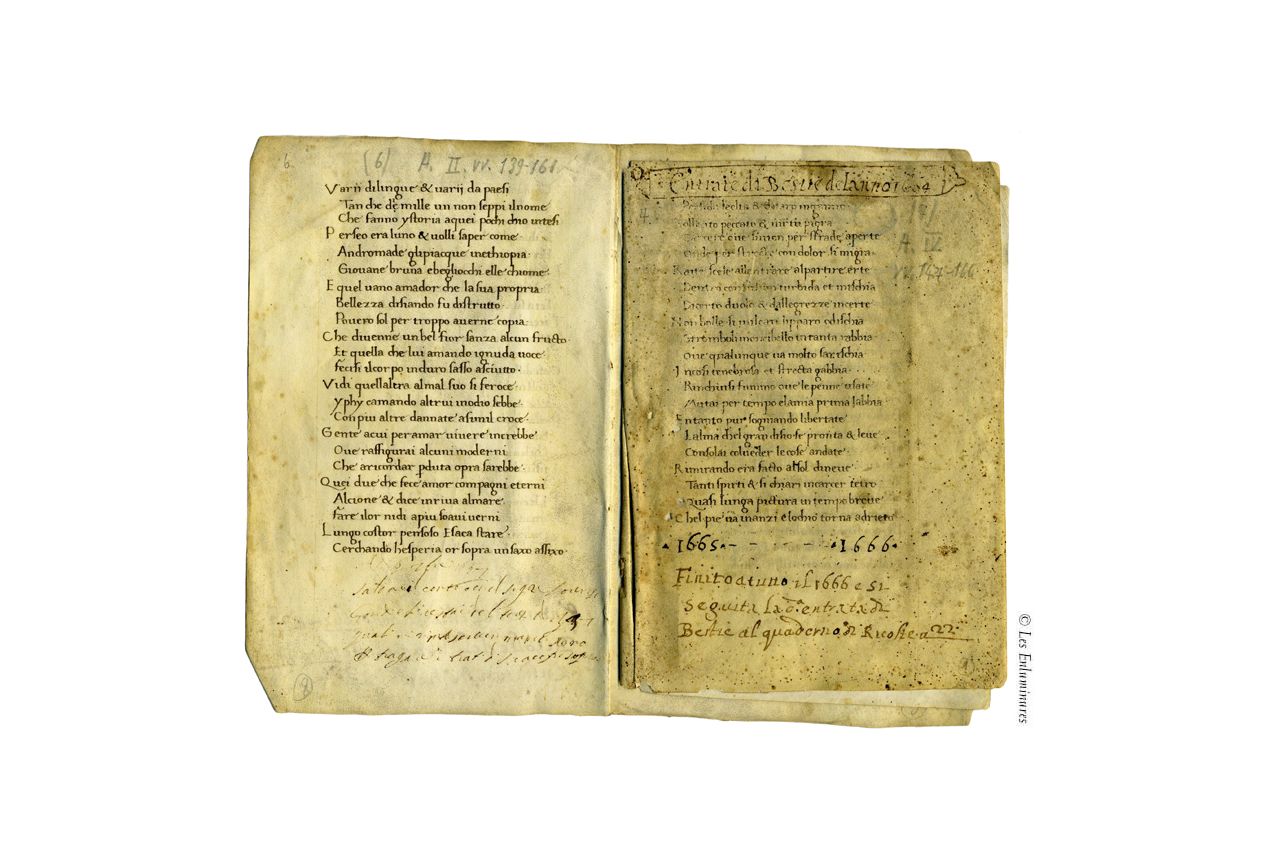 6
(6) A. II. vv. 139-161
Varij dilingue & uarij da paesi
Tan che de mille un non seppi ilnome
Che fanno ystoria aquei pochi chio intesi
Perseo era luno & uolli saper come
Andromade glipiacque inethiopia
Giouane bruna ebegliocchi elle chiome
E quel uano amador che la sua propria
Bellezza disiando fu distrutto
Pouero sol per troppo auerne copia
Che diuenne un bel fior sanza alcun fructo
Et quella che lui amando ignuda uoce
fecesi ilcorpo induro sasso asciutto
Vidi quellaltra almal suo si feroce
yphy camando altrui inodio sebbe
Con piu altre dannate asimil croce
Gente acui per amar uiuere increbbe
Oue raffigurai alcuni moderni
Che aricordar pduta opra sarebbe
Quei due che fece amor compagni eterni
Alcione & dice inriua almare
fare ilor nidi apiu soaui uerni
Lungo costor pensoso Esaca stare
Cerchando hesperia or sopra un saxo assixo
9
Entrate di Bestie delanno 1664
4.
(8)
A. IV
vv. 147-166
errori
ollecito peccato & uirtu pigra
Carcere oue siuien per strade aperte
Onde per strecte con dolor si migra
Ratte scese allentrare alpartire erte
Dentro confusion turbida et mischia
Dicerte duole & dallegrezze incerte
Non bolle si uulcan lipparo odischia
Strompoli mongibello intanta rabbia
Oue qualunque ua molto sarrischia
Incosi tenebrosa et strecta gabbia
Rinchiusi fummo oue le penne usate
Mutai per tempo elamia prima labbia
Entanto pur sognando libertate
Lalma chel gran disio fe pronta & leue
Consolai coluéder le cose andate
Rimirando era fatto alsol dineue
Tanti spirti & si chiari incarcer tetro
Quasi lunga pictura in tempo breue
Chel pie ua inanzi elochio torna adrieto
1665 - - - - 1666
Finito atutto il 1666 e si
seguita La d.ª entrata di
Bestie al quaderno di Ricolte a 22